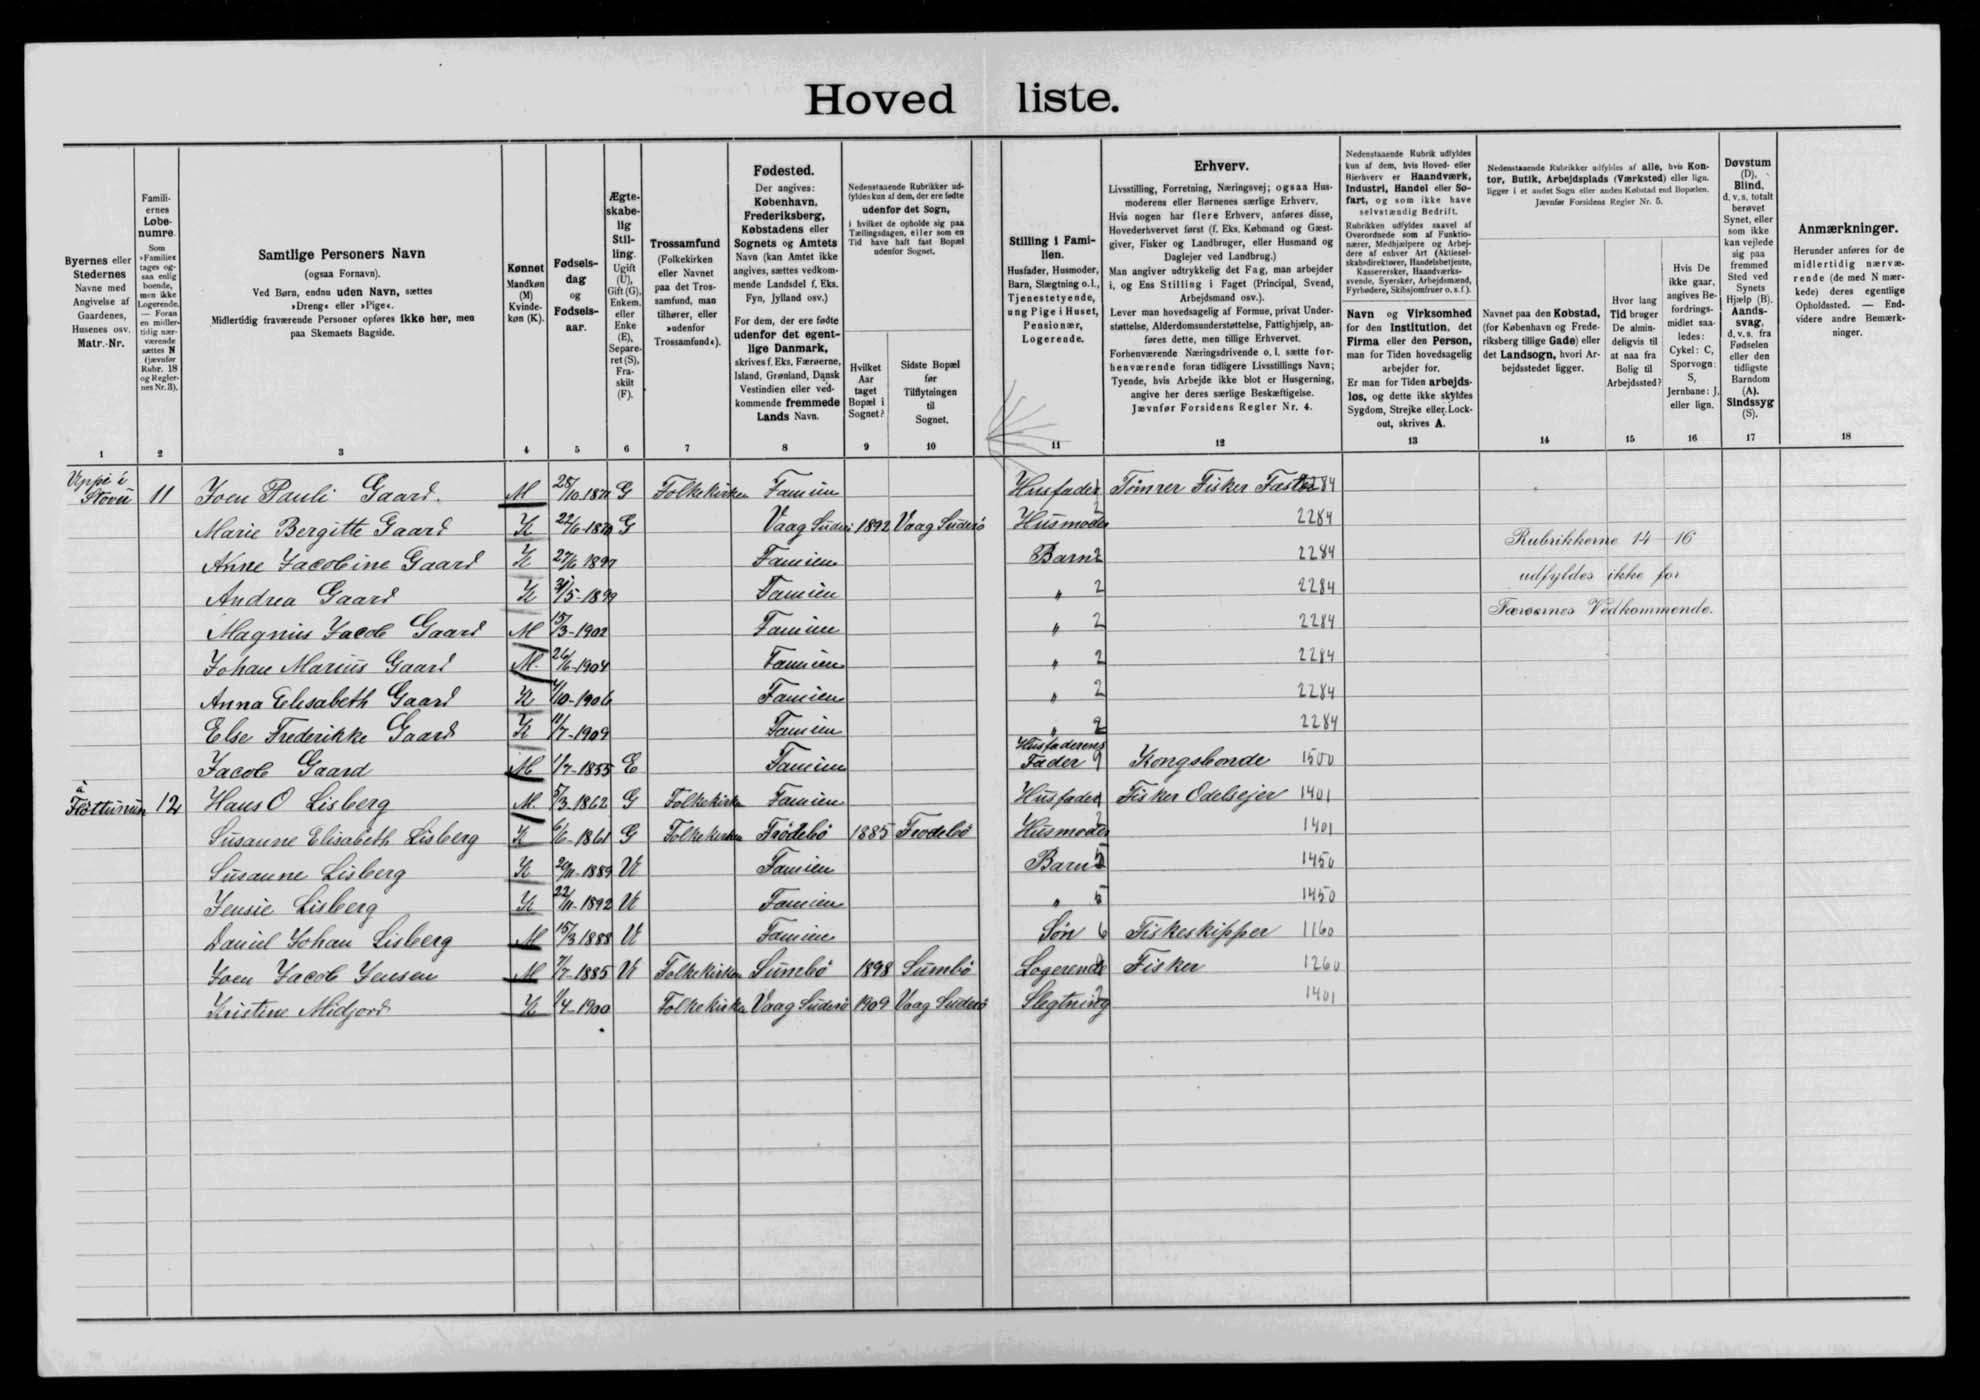 Hoved liste.
Byernes eller Stedernes Navne med Angivelse af Gaardenes, Husenes osv. Matr.-Nr.
Famili-ernes Løbe-numre. Som »Familie« tages og-saa enlig boende, men ikke Logerende. — Foran en midler-tidig nær-værende sættes N (jævnfør Rubr. 18 og Regler-nes Nr. 3).
Samtlige Personers Navn
(ogsaa Fornavn).
Ved Børn, endnu uden Navn, sættes
»Dreng« eller »Pige«.
Midlertidig fraværende Personer opføres ikke her, men
paa Skemaets Bagside.
Kønnet Mandkøn (M) Kvinde-køn (K).
Fødsels-dag og Fødsels-aar.
Ægte-skabe-lig Stil-ling. Ugift (U), Gift (G), Enkem. eller Enke (E), Separe-ret (S), Fra-skilt (F).
Trossamfund (Folkekirken eller Navnet paa det Tros-samfund, man tilhører, eller »udenfor Trossamfund«).
Fødested.
Der angives: København, Frederiksberg, Købstadens eller Sognets og Amtets Navn (kan Amtet ikke angives, sættes vedkom-mende Landsdel f. Eks. Fyn, Jylland osv.)
For dem, der ere fødte udenfor det egent-lige Danmark, skrives f. Eks. Færøerne, Island, Grønland, Dansk Vestindien eller ved-kommende fremmede Lands Navn.
Nedenstaaende Rubrikker ud-fyldes kun af dem, der ere fødte udenfor det Sogn, i hvilket de opholde sig paa Tællingsdagen, eller som en Tid have haft fast Bopæl udenfor Sognet.
Hvilket Aar taget Bopæl i Sognet?
Sidste Bopæl før Tilflytningen til Sognet.
Stilling i Fami-lien.
Husfader, Husmoder, Barn, Slægtning o.l., Tjenestetyende, ung Pige i Huset, Pensionær, Logerende.
Erhverv.
Livsstilling, Forretning, Næringsvej; ogsaa Hus-moderens eller Børnenes særlige Erhverv.
Hvis nogen har flere Erhverv, anføres disse, Hovederhvervet først (f. Eks. Købmand og Gæst-giver, Fisker og Landbruger, eller Husmand og Daglejer ved Landbrug.)
Man angiver udtrykkelig det Fag, man arbejder i, og Ens Stilling i Faget (Principal, Svend, Arbejdsmand osv.).
Lever man hovedsagelig af Formue, privat Under-støttelse, Alderdomsunderstøttelse, Fattighjælp, an-føres dette, men tillige Erhvervet.
Forhenværende Næringsdrivende o. l. sætte for-henværende foran tidligere Livsstillings Navn; Tyende, hvis Arbejde ikke blot er Husgerning, angive her deres særlige Beskæftigelse.
Jævnfør Forsidens Regler Nr. 4.
Nedenstaaende Rubrik udfyldes kun af dem, hvis Hoved- eller Bierhverv er Haandværk, Industri, Handel eller Sø-fart, og som ikke have selvstændig Bedrift.
Rubrikken udfyldes saavel af Overordnede som af Funktio-nærer, Medhjælpere og Arbej-dere af enhver Art (Aktiesel-skabsdirektører, Handelsbetjente, Kassererske r, Haandværks-svende, Syersker, Arbejdsmænd, Fyrbødere, Skibsjomfruer o. s. f.).
Navn og Virksomhed for den Institution, det Firma eller den Person, man for Tiden hovedsagelig arbejder for.
Er man for Tiden arbejds-løs, og dette ikke skyldes Sygdom, Strejke eller Lock-out, skrives A.
Nedenstaaende Rubrikker udfyldes af alle, hvis Kon-tor, Butik, Arbejdsplads (Værksted) eller lign. ligger i et andet Sogn eller anden Købstad end Bopælen. Jævnfør Forsidens Regler Nr. 5.
Navnet paa den Købstad, (for København og Frede-riksberg tillige Gade) eller det Landsogn, hvori Ar-bejdsstedet ligger.
Hvor lang Tid bruger De almin-deligvis til at naa fra Bolig til Arbejdssted?
Hvis De ikke gaar, angives Be-fordrings-midlet saa-ledes: Cykel: C, Sporvogn: S, Jernbane: J, eller lign.
Døvstum (D), Blind, d. v. s. totalt berøvet Synet, eller som ikke kan vejlede sig paa fremmed Sted ved Synets Hjælp (B). Aands-svag, d. v. s. fra Fødselen eller den tidligste Barndom (A). Sindssyg (S).
Anmærkninger.
Herunder anføres for de midlertidig nærvæ-rende (de med N mær-kede) deres egentlige Opholdssted. — End-videre andre Bemærk-ninger.
1 2 3 4 5 6 7 8 9 10 11 12 13 14 15 16 17 18
Uppi i
Stovu 11 Joen Pauli Gaard. M 28/10 1870 G Folkekirken Famien Husfader Tømrer Fisker 2284
Marie Bergitte Gaard K 22/6-1870 G Vaag Suderø 1892 Vaag Suderø Husmoder 2 2284
Anne Jacobine Gaard K 27/6 1897 Famien Barn 2 2284
Andrea Gaard K 31/5-1899 Famien " 2 2284
Magnus Jacob Gaard M 15/3-1902 Famien " 2 2284
Johan Marius Gaard M. 26/6-1904 Famien " 2 2284
Anna Elisabeth Gaard K /10-1906 Famien " 2 2284
Else Frederikke Gaard K 11/7-1909 Famien " 2 2284
Jacob Gaard M 1/7-1855 E Famien Husfaderens Fader 9 Kongsbonde 1500
12 Hans O Lisberg M. 5/3-1862 G Folkekirken Famien Husfader Fisker Odelsejer 1401
Susanne Elisabeth Lisberg K 6/6-1861 G Folkekirken Frodebö 1885 Frodebö Husmoder 2 1401
Susanne Lisberg K 20/11-1889 U Famien Barn 5 1450
Jensie Lisberg K 22/11-1892 U Famien " 5 1450
Daniel Johan Lisberg M 15/3 1888 U Famien Søn 6 Fiskeskipper 1160
Joen Jacob Jensen M 7/7-1885 U Folkekirken Sumbö 1898 Sumbö Logerende Fisker 1260
Kristine Midjord K 1/4-1900 Folkekirken Vaag Suderø 1909 Vaag Suderø Slegtning 2 1401
Rubrikkerne 14-16
udfyldes ikke for
Færøernes Vedkommende.